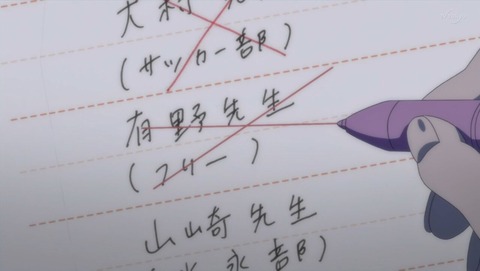 大
(サッカー部)
有野先生
(フリー)
山崎先生
水泳部)